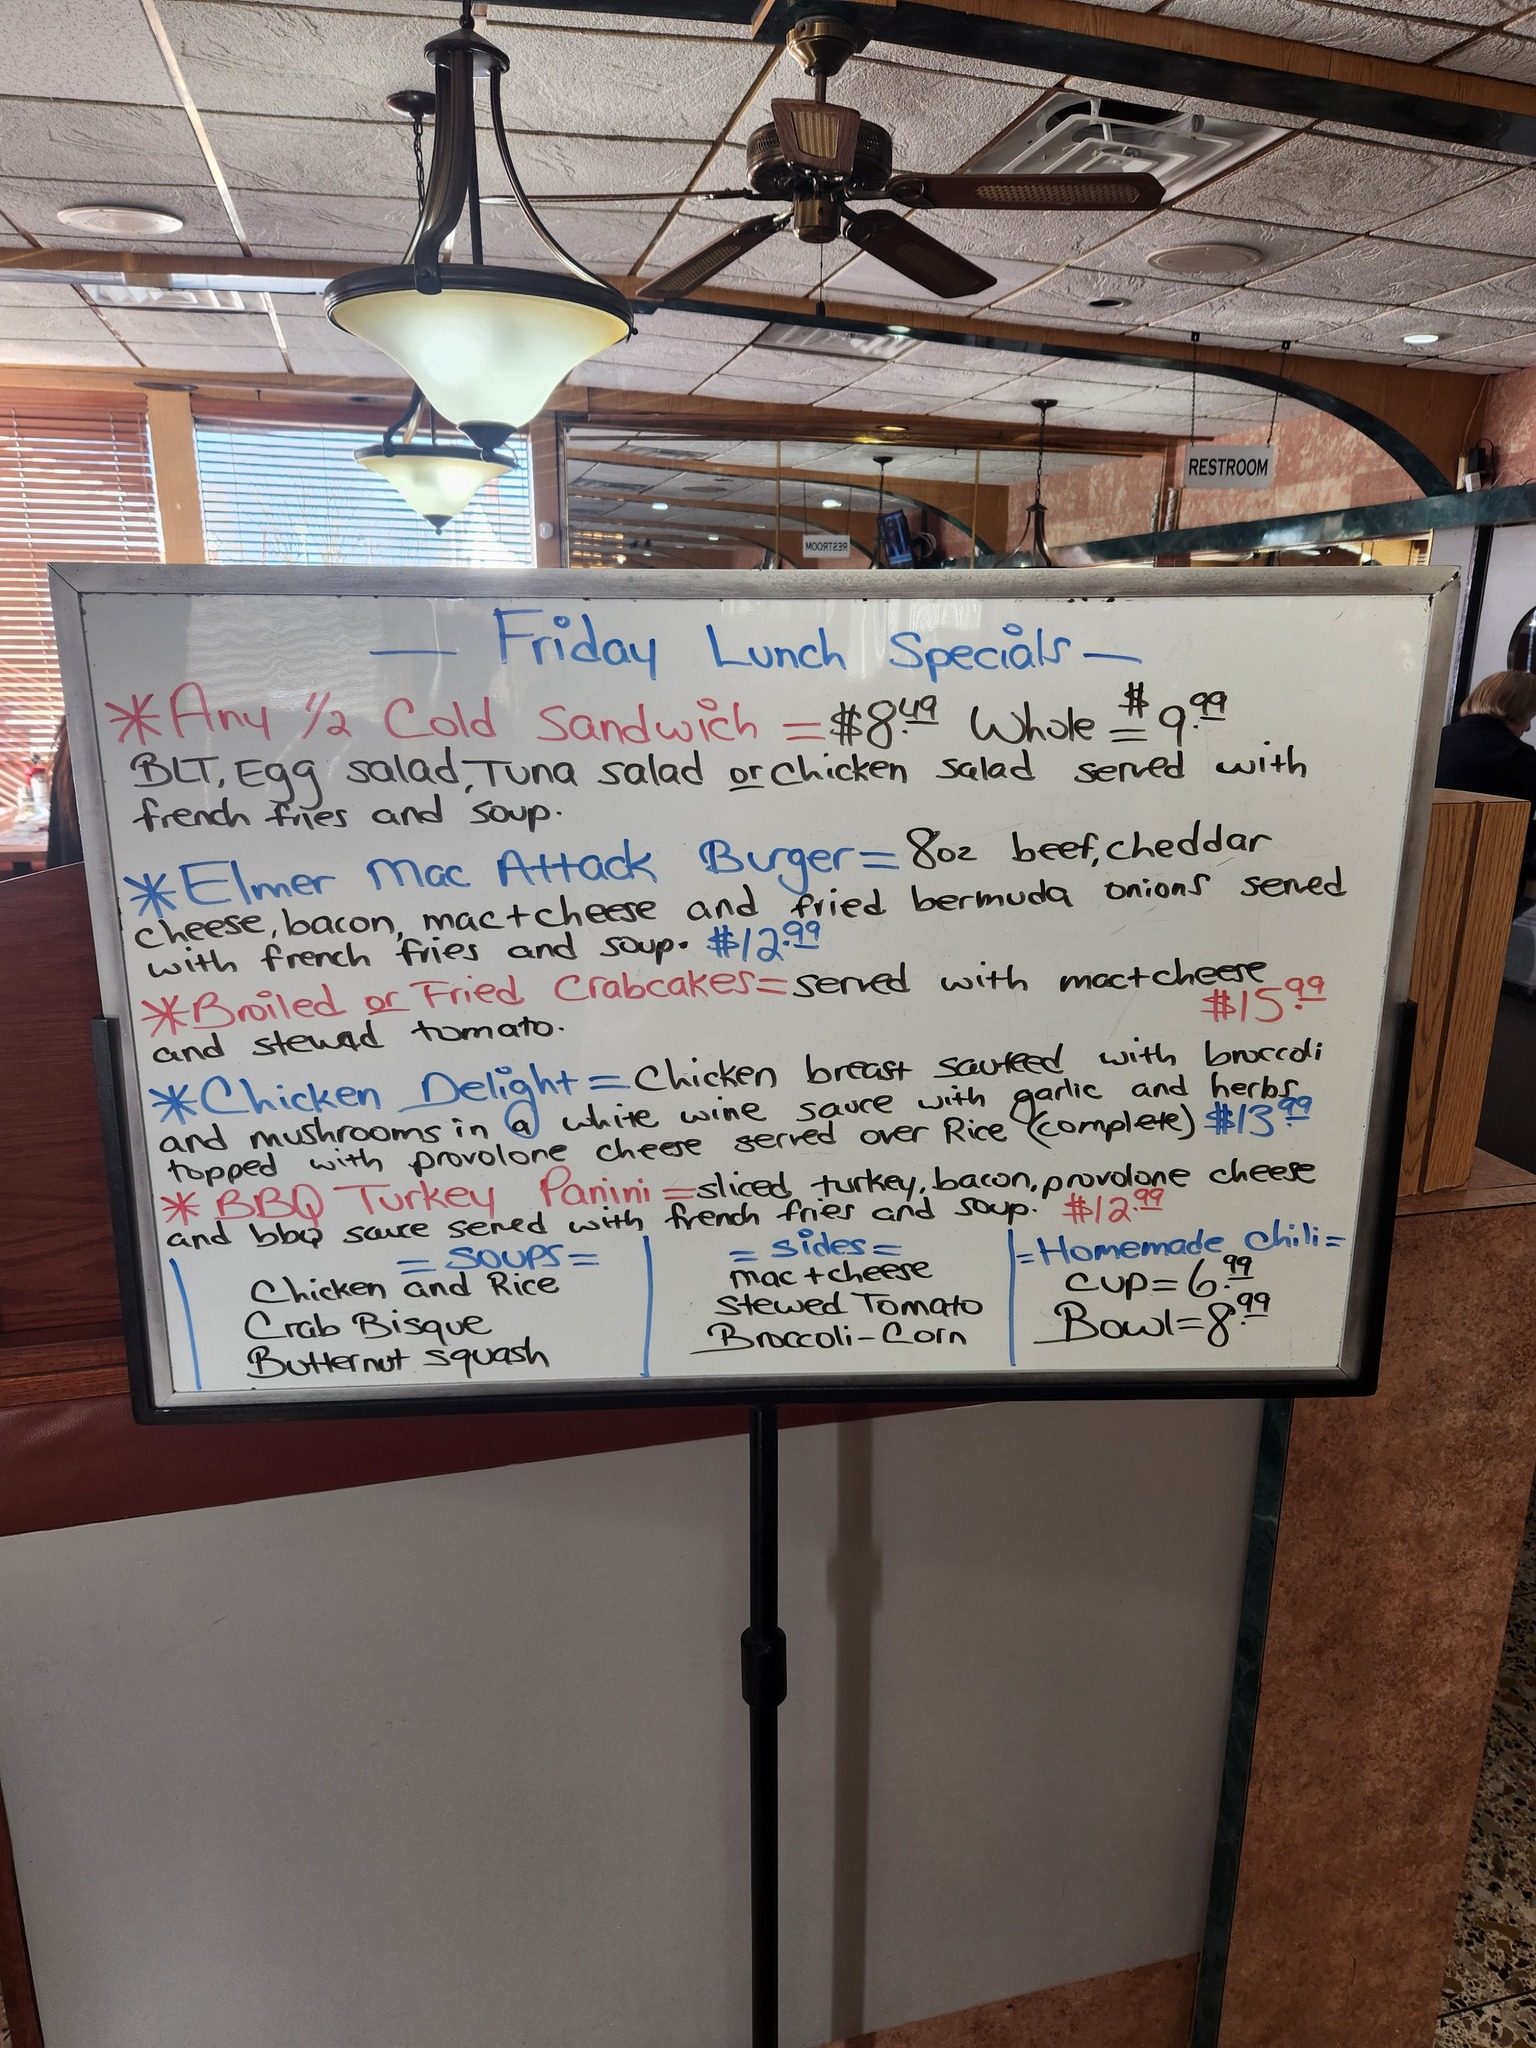 RESTROOM
RESTROOM
— Friday Lunch Specials —
* Any 1/2 Cold Sandwich = $8.49 Whole = $9.99
BLT, Egg salad, Tuna salad or chicken salad served with
french fries and soup.
* Elmer Mac Attack Burger = 8oz beef, cheddar
cheese, bacon, mac+cheese and fried bermuda onions served
with french fries and soup. $12.99
* Broiled or Fried Crabcakes = served with mac+cheese
and stewed tomato. $15.99
* Chicken Delight = Chicken breast sauteed with broccoli
and mushrooms in a white wine sauce with garlic and herbs
topped with provolone cheese served over Rice (complete) $13.99
* BBQ Turkey Panini = sliced turkey, bacon, provolone cheese
and bbq sauce served with french fries and soup. $12.99
= Soups =
Chicken and Rice
Crab Bisque
Butternut squash
= Sides =
mac+cheese
Stewed Tomato
Broccoli-Corn
= Homemade chili =
Cup = 6.99
Bowl = 8.99